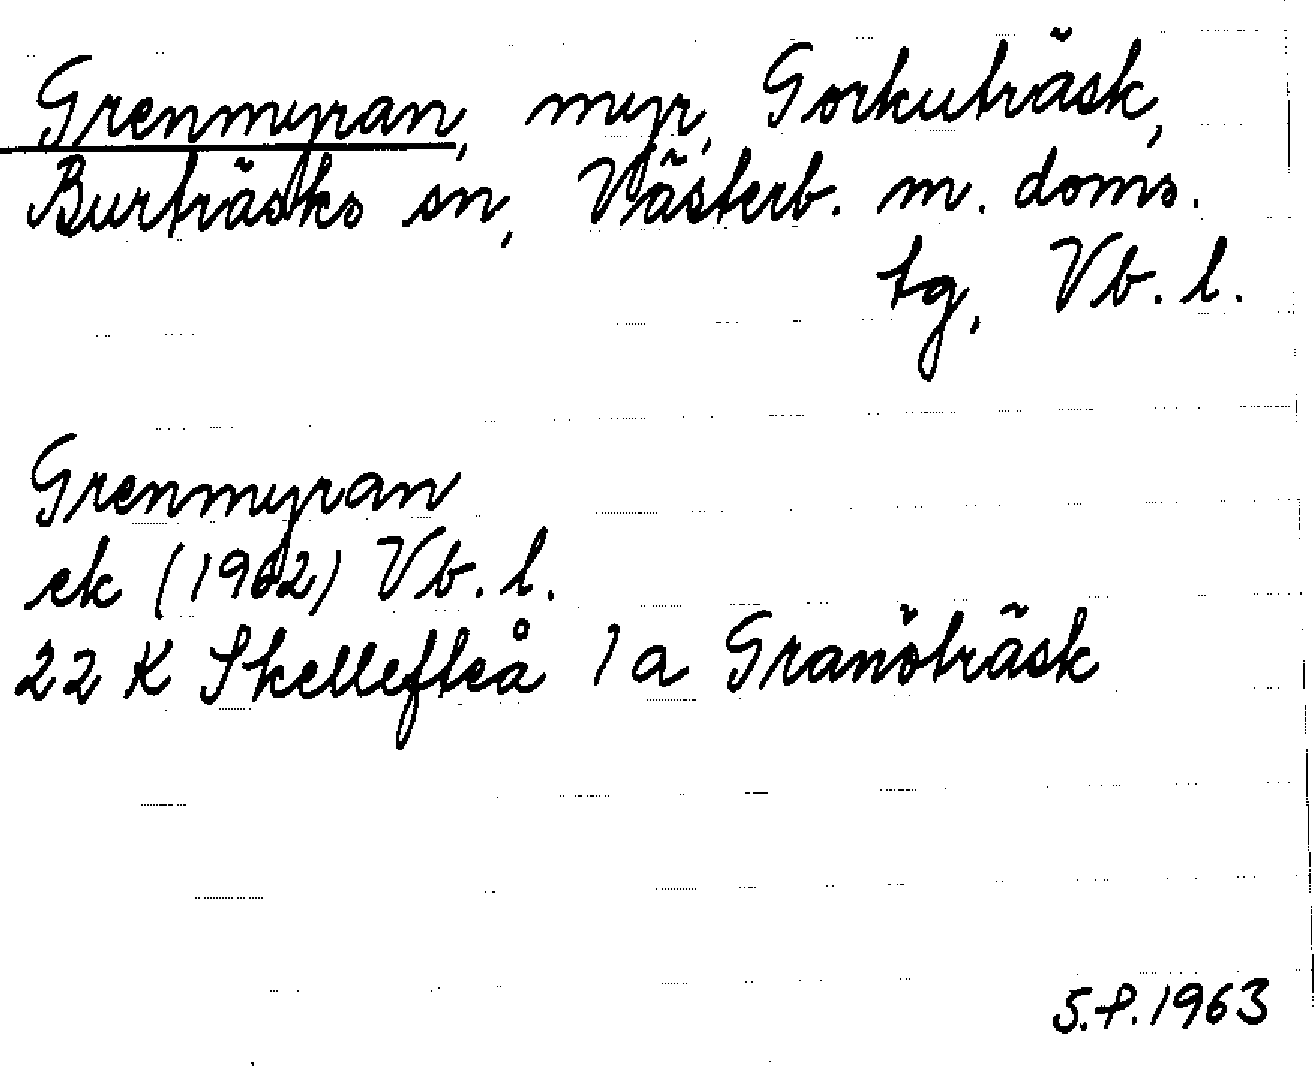 Grenmyran, myr, Gorkuträsk,
Burträsks sn, Västerb. m. doms.
tg, Vb. l.
Grenmyran
ek (1962) Vb. l.
22 K Skellefteå 1 a Granöträsk
S.P. 1963